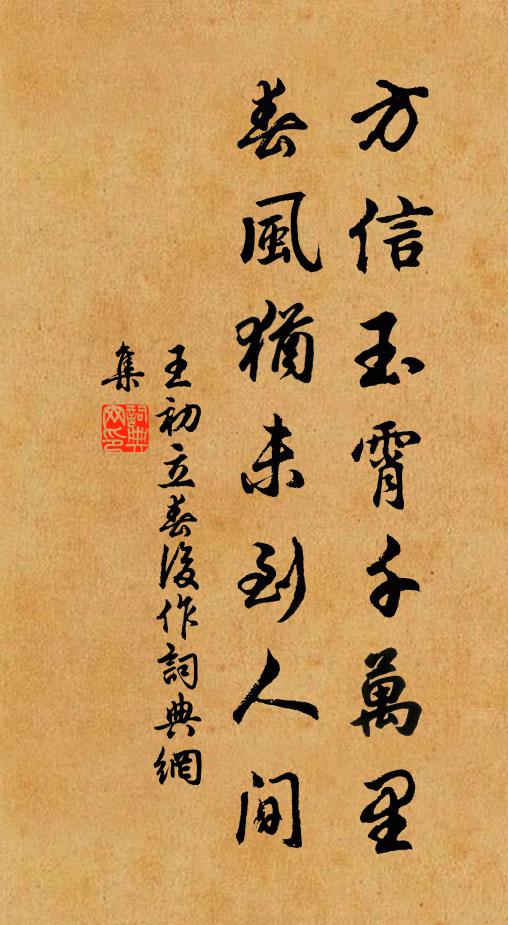 方信玉霄千萬里
春風猶未到人間
王初立春後作詞典網
集
詞典
网印